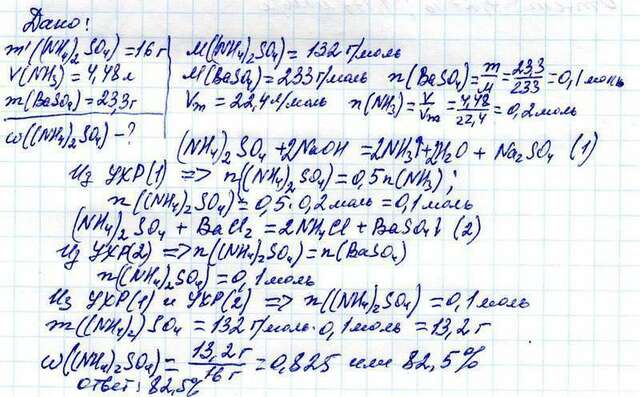 Дано:
m'((NH₄)₂SO₄)=16г
V(NH₃)=4,48л
m(BaSO₄)=23,3г
ω((NH₄)₂SO₄)-?
M((NH₄)₂SO₄)=132г/моль
M(BaSO₄)=233г/моль n(BaSO₄)=m/M=23,3/233=0,1моль
Vm=22,4л/моль n(NH₃)=V/Vm=4,48/22,4=0,2моль
(NH₄)₂SO₄+2NaOH=2NH₃↑+2H₂O+Na₂SO₄ (1)
Из УХР(1) => n((NH₄)₂SO₄)=0,5n(NH₃);
n((NH₄)₂SO₄)=0,5·0,2моль=0,1моль
(NH₄)₂SO₄+BaCl₂=2NH₄Cl+BaSO₄↓ (2)
Из УХР(2) => n((NH₄)₂SO₄)=n(BaSO₄)
n((NH₄)₂SO₄)=0,1моль
Из УХР(1) и УХР(2) => n((NH₄)₂SO₄)=0,1моль
m((NH₄)₂)SO₄=132г/моль·0,1моль=13,2г
ω((NH₄)₂SO₄)=13,2г/16г=0,825 или 82,5%
ответ: 82,5%